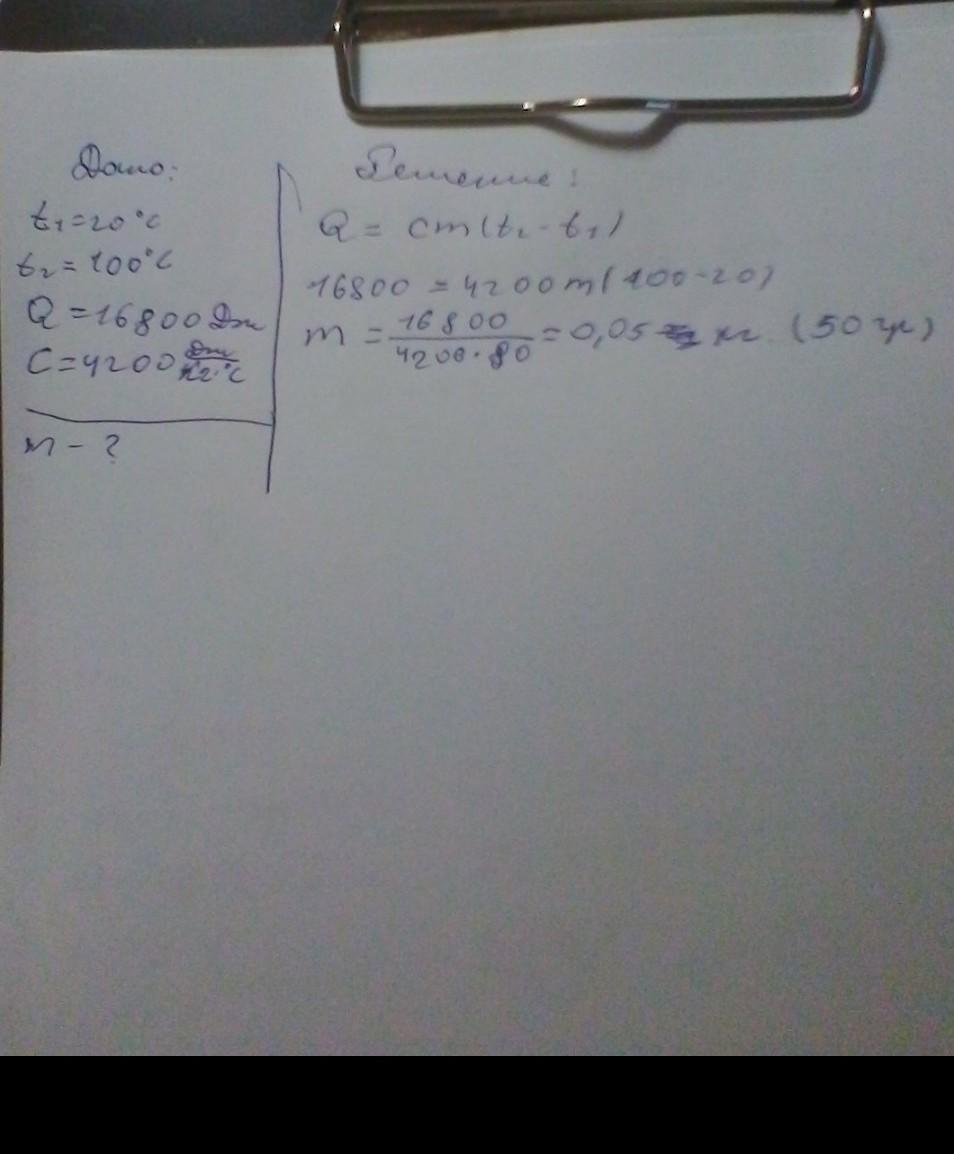 Дано:
t₁=20°C
t₂=100°C
Q=16800 Дж
C=4200 Дж/кг·°C
m - ?
Решение:
Q = cm(t₂-t₁)
16800 = 4200m(100-20)
m = 16800/4200·80 = 0,05 кг. (50 гр)